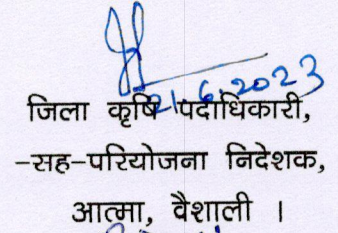 21.6.2023
जिला कृषि पदाधिकारी,
-सह-परियोजना निदेशक,
आत्मा, वैशाली ।